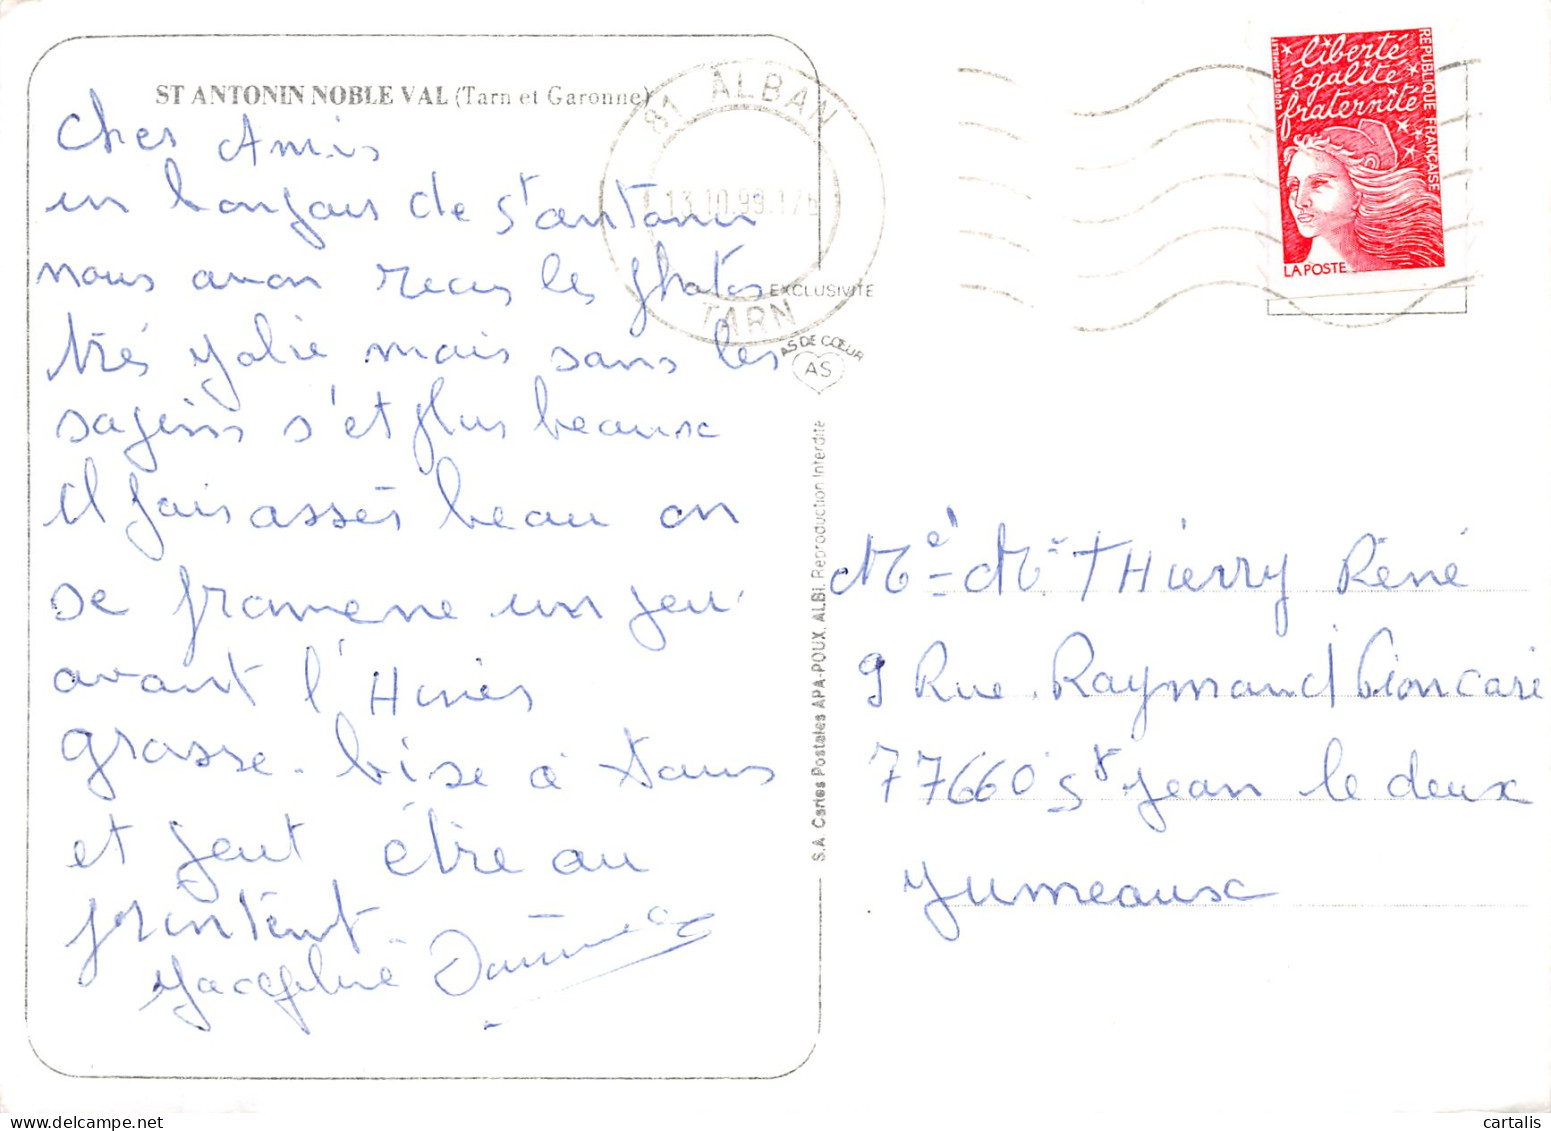 ST ANTONIN NOBLE VAL (Tarn et Garonne)
Cher Amis
un bonjour de St antonin
nous avon recus les photos
très jolie mais sans les
sapins s'et plus beaux
il fais assés beau on
se promene un peu
avant l'Hiver
grasse bise à tous
et peut être au
printent
Jacqeline
81 ALBAN
13.10.99
TARN
EXCLUSIVITE
AS DE CŒUR
AS
S.A. Cartes Postales APA-POUX, ALBI. Reproduction Interdite
liberté
égalité
fraternité
REPUBLIQUE FRANÇAISE
LA POSTE
Me - Mr THierry Réné
9 Rue Raymond Pioncaré
77660 St jean le deux
jumeaux
cartalis